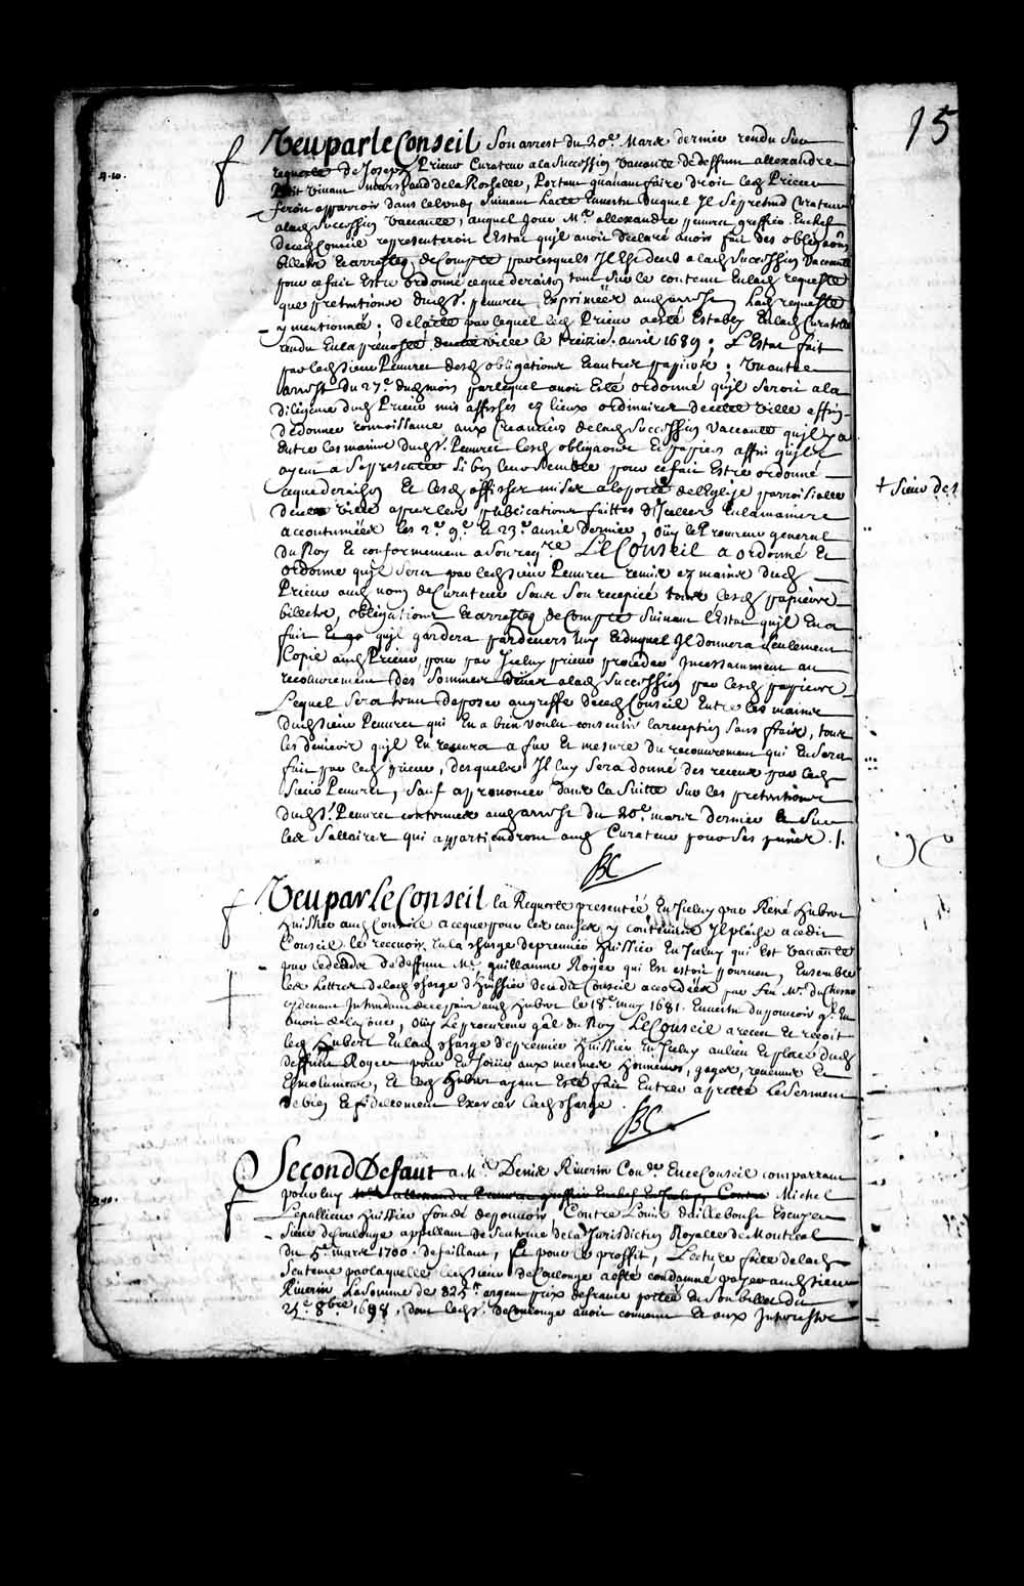 15
Veu par le Conseil son arrest du 20e. Mars dernier rendu sur
requeste de Joseph Prieur Curateur a la succession vacante de deffunt allexandre
Petit vivant marchand de la Rochelle, Portant qu'avant faire droit led Prieur
feroit apparoir dans lelundy suivant lacte Envertu duquel Il se pretend Curateur
alad succession vaccante, auquel jour Me. allexandre peuvret greffier Enchef
decedConseil representeroit l'Estat qu'il avoit declaré avoir fait des obligaons
billets Et arrestez de Compte par lesquels Il Est deub alad succession vaccante
pour ce fait Estre ordonné ceque de raison tant sur le contenu Enlad requeste
que pretentions dudS. peuvret Exprimées aud arrest, Lad requeste
y mentionnée; delacte par lequel led Prieur a esté Estably Enlad Curatelle
rendu Enla prevosté de cette ville le treize. avril 1689; L'Estat fait
par led sieur Peuvret desd obligations Et autres papiers; Un autre
arrest du 27e. dud mois par lequel avoit Esté ordonné qu'il seroit ala
diligence dud Prieur mis affiches es lieux ordinaires de cette ville affin
de donner connoissance aux Creanciers de lad succession vaccante qu'il y a
Entre les mains dudS. Peuvret lesd obligations Et papiers affin qu'ils
ayent a se presenter si bon leur semble pour ce fait Estre ordonné
ceque de raison Et lesd affiches mises ala porte de l'Eglise parroissialle
de cette ville apres les publications faittes d'Icelles Enlamaniere
accoutumées les 2e. 9e. Et 23e. avril dernier, Ouy le Procureur general
du Roy Et conformement a son reqre. Le Conseil a ordonné Et
ordonne qu'il sera par led sieur Peuvret remis ez mains dud
Prieur aud nom de Curateur sous son recepicé tous lesd papiers
billets, obligations Et arrestez de Compte suivant l'Estat qu'il En a
fait qu'il gardera pardevers luy Et duquel Il donnera seulement
Copie aud Prieur, pour par Iceluy prieur proceder Incessamment au
recouvrement des sommes deues alad succession par lesd papiers
Lequel sera tenu deposer au greffe decedConseil Entre les mains
dud sieur Peuvret qui En a bien voulu consentir la reception sans frais, tous
les deniers qu'il En recevra a fur Et mesure du recouvrement qui En sera
fait par led prieur, desquels Il luy sera donné des receus par led
sieur Peuvret, sauf a prononcer dans la suitte sur les pretentions
dudS. Peuvret contenues aud arrest du 20e. mars dernier Et sur
les sallaires qui appartiendront aud Curateur pour ses peines ./.
BC
Veu par Le Conseil la Requeste presentée En Iceluy par René Hubert
Huissier aud Conseil a ceque pour les causes y contenues Il plaise a cedit
Conseil le recevoir Enla charge de premier Huissier En Iceluy qui Est vaccante
par le decedz de deffunt Me. guillaume Roger qui En estoit pourveu, Ensemble
les Lettres de lad charge d'Huissier decedit Conseil accordées par feu Mr. du Chesneau
cydevant Intendant de ce pais aud Hubert le 18e. may 1681. Envertu du pouvoir ql. En
avoit de la Cour, Ouy Le procureur gal du Roy. Le Conseil a receu Et reçoit
led Hubert Enlad charge de premier Huissier En Iceluy au lieu Et place dud
deffunt Roger pour En Jouir aux mesmes Honneurs, gages, revenus Et
Esmolumens, Et led Hubert ayant Esté fait Entrer a presté Le serment
de bien Et fidellement Exercer lad charge.
BC
Second Defaut a Me. Denis Riverin Conser En ce Conseil comparant
pour luy Me. allexandre Peuvret greffier Enchef En Iceluy, Contre Michel
Lepallieur Huissier fondé de pouvoir, Contre Louis Dailleboust Escuyer
Sieur de Coulonge appellant de sentence de la Jurisdiction Royalle de Montreal
du 5e mars 1700. defaillant, Et pour le proffit, Lecture faite de lad
sentence par laquelle led sieur de Coulonge a esté condamné payer aud sieur
Riverin La somme de 325tt. argent prix de france portée En son billet du
25e. 8bre. 1698. dont led S. de Coulonge avoit convenu Et aux Interestz
+ Sieur de